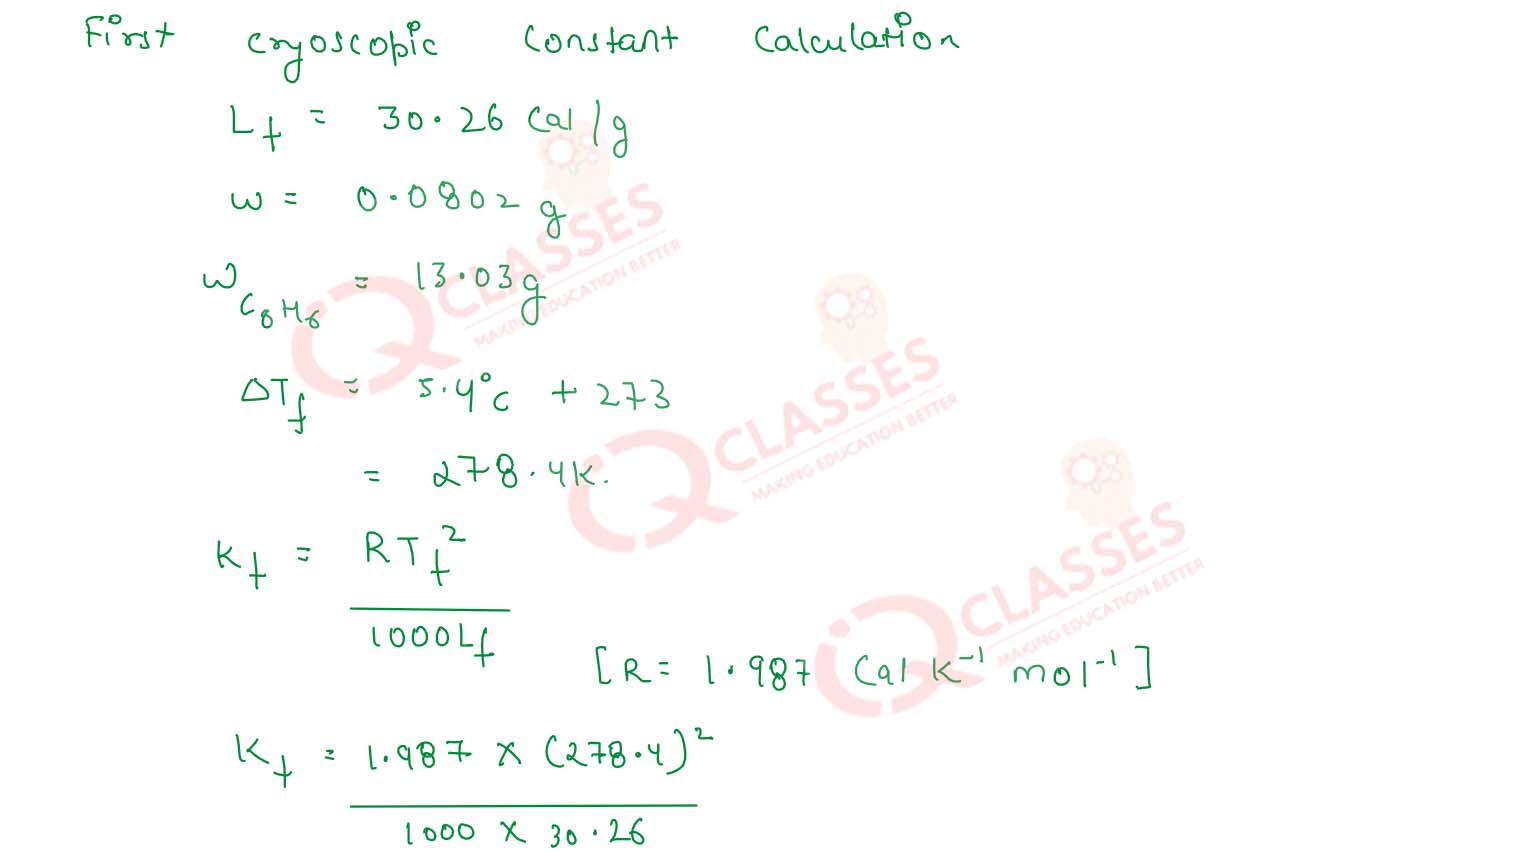 First cryoscopic constant calculation
Lf = 30.26 Cal/g
w = 0.0802 g
wC6H6 = 13.03g
ΔTf = 5.4°C + 273
= 278.4K.
Kf = RTf²
1000Lf
[R = 1.987 Cal K⁻¹ mol⁻¹]
Kf = 1.987 × (278.4)²
1000 × 30.26
iQ CLASSES
MAKING EDUCATION BETTER
iQ CLASSES
MAKING EDUCATION BETTER
iQ CLASSES
MAKING EDUCATION BETTER